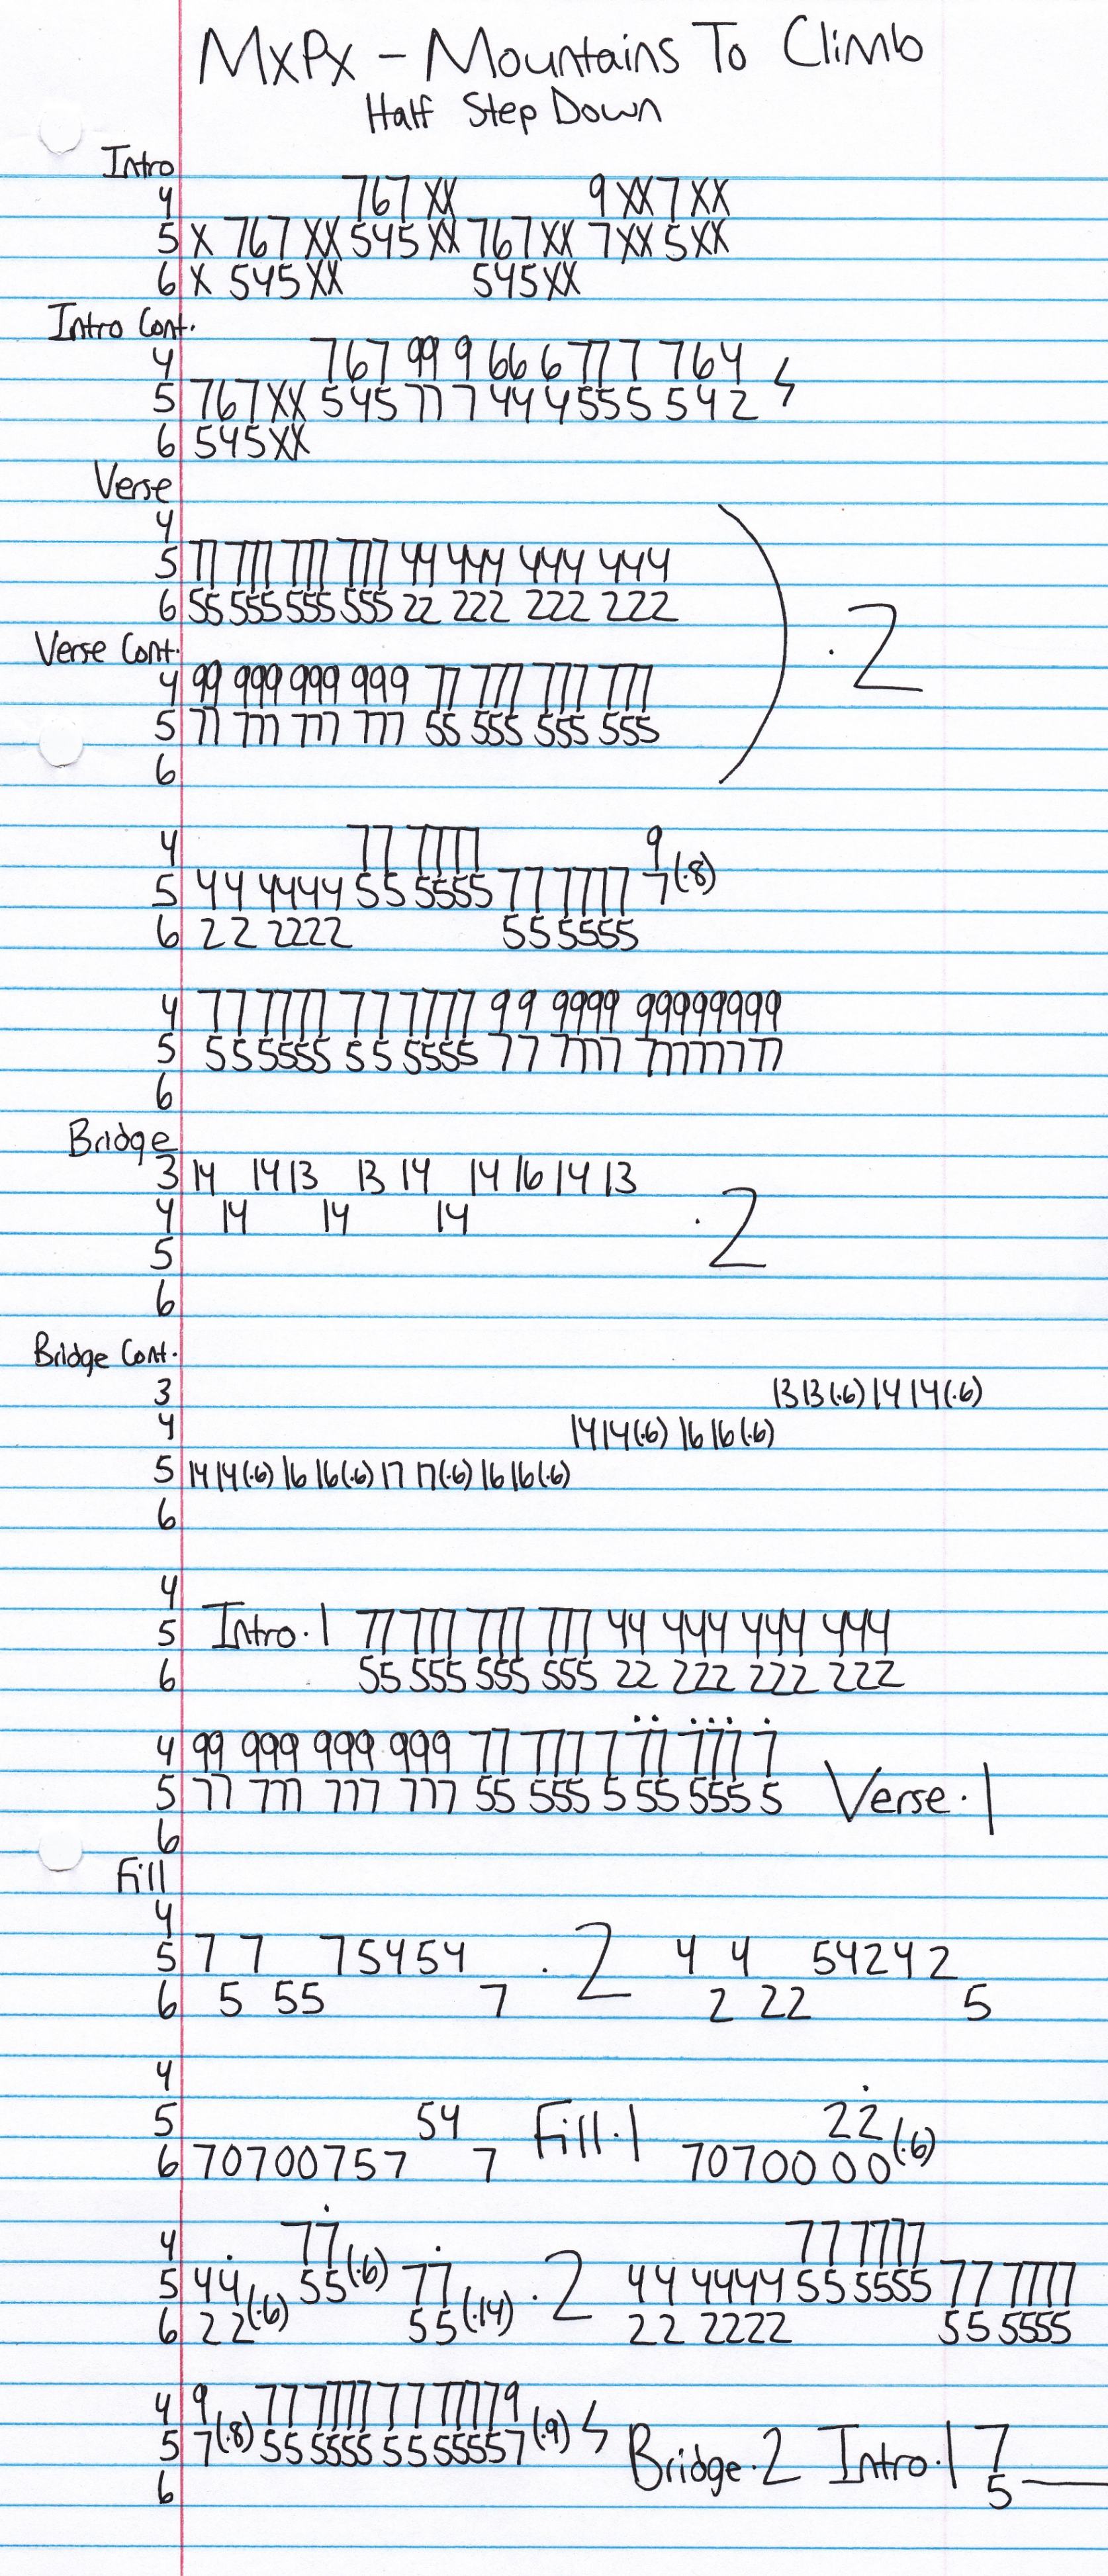 MxPx - Mountains To Climb
Half Step Down
Intro
4 767 XX 9 XX 7 XX
5 X 767 XX 545 XX 767 XX 7 XX 5 XX
6 X 545 XX 545 XX
Intro Cont.
4 767 99 9 66 6 77 7 764
5 767 XX 545 77 7 44 4 55 5 542
6 545 XX
Verse
4
5 77 777 777 777 44 444 444 444
6 55 555 555 555 22 222 222 222
·2
Verse Cont.
4 99 999 999 999 77 777 777 777
5 77 777 777 777 55 555 555 555
6
4 77 7777 9
5 44 4444 55 5555 77 7777 7(·8)
6 22 2222 55 5555
4 77 7777 77 7777 99 9999 99999999
5 55 5555 55 5555 77 7777 77777777
6
Bridge
3 14 14 13 13 14 14 16 14 13
4 14 14 14 ·2
5
6
Bridge Cont.
3 13 13(·6) 14 14(·6)
4 14 14(·6) 16 16(·6)
5 14 14(·6) 16 16(·6) 17 17(·6) 16 16(·6)
6
4
5 Intro·1 77 777 777 777 44 444 444 444
6 55 555 555 555 22 222 222 222
4 99 999 999 999 77 777 7 77 777 7
5 77 777 777 777 55 555 5 55 555 5 Verse·1
6
Fill
4
5 7 7 75454 ·2 4 4 54242
6 5 55 7 2 22 5
4
5 54 Fill·1 22
6 70700757 7 707000 00(·6)
4 77 77 7777
5 44 55(·6) 77 ·2 44 4444 55 5555 77 7777
6 22(·6) 55(·14) 22 2222 55 5555
4 9 77 7777 77 77779
5 7(·8) 55 5555 55 55557(·9) Bridge·2 Intro·1 7
6 5